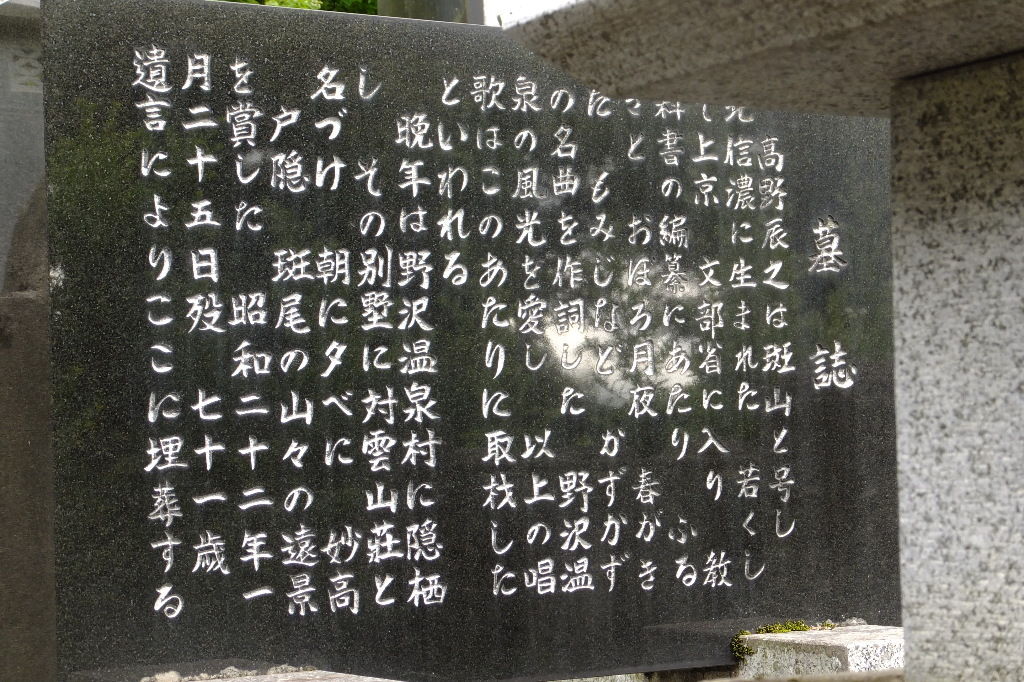 墓誌
高野辰之は斑山と号し
北信濃に生まれた 若くし
て上京 文部省に入り 教
科書の編纂にあたり ふる
さと おぼろ月夜 春がき
た もみじなど かずかず
の名曲を作詞した 野沢温
泉の風光を愛し 以上の唱
歌はこのあたりに取材した
といわれる
晩年は野沢温泉村に隠栖
し その別墅に対雲山荘と
名づけ 朝に夕べに 妙高
戸隠 斑尾の山々の遠景
を賞した 昭和二十二年一
月二十五日歿 七十一歳
遺言によりここに埋葬する